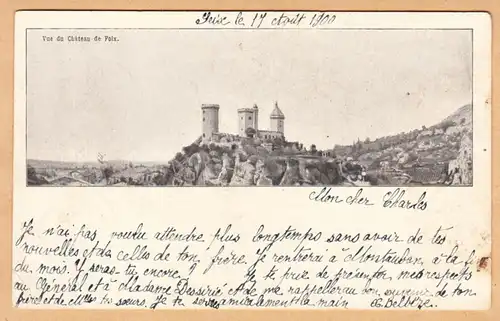 Foix le 17 Août 1900
Vue du Château de Foix.
Mon cher Charles
Je n'ai pas voulu attendre plus longtemps sans avoir de tes
nouvelles et des celles de ton frère. Je rentrerai à Montauban à la fin
du mois. Y seras-tu encore? Je te prie de présenter mes respects
au Général et à Madame et de me rappeler au bon souvenir de ton
frère et de Mlles tes sœurs. Je te serre amicalement la main